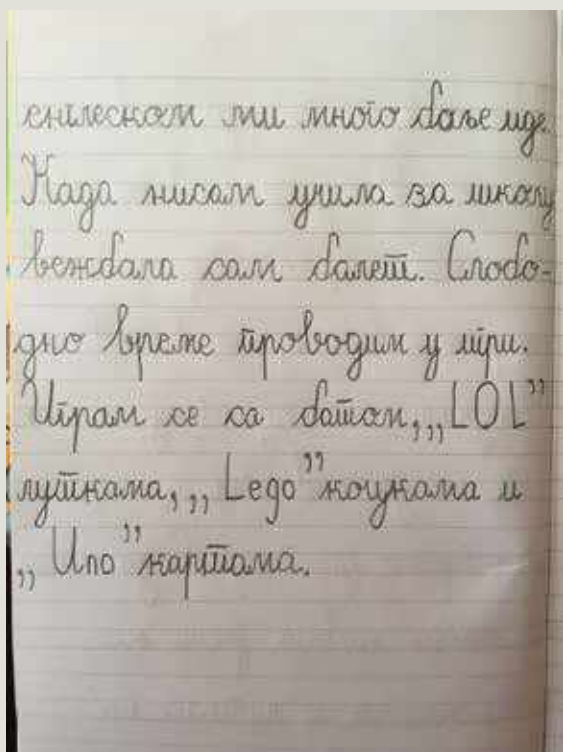 енглеском ми много боље иде.
Када нисам учила за школу
вежбала сам балет. Слобо-
дно време проводим у игри.
Играм се са батом, „LOL”
луткама, „Lego” коцкама и
„Uno” картама.